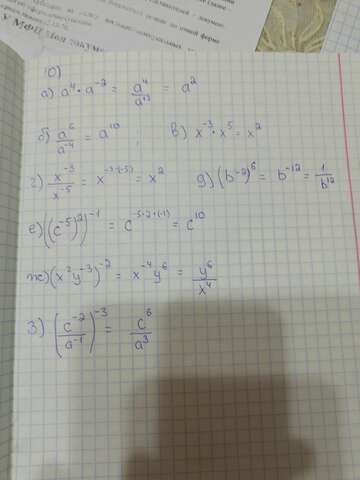 У МФЦ
10)
а) a⁴ · a⁻² = a⁴/a⁺² = a²
б) a⁶/a⁻⁴ = a¹⁰ ; в) x⁻³ · x⁵ = x²
г) x⁻³/x⁻⁵ = x⁻³⁻⁽⁻⁵⁾ = x² д) (b⁻²)⁶ = b⁻¹² = 1/b¹²
е) ((c⁻⁵)²)⁻¹ = c⁻⁵·²·⁽⁻¹⁾ = c¹⁰
ж) (x²y⁻³)⁻² = x⁻⁴y⁶ = y⁶/x⁴
з) (c⁻²/a⁻¹)⁻³ = c⁶/a³